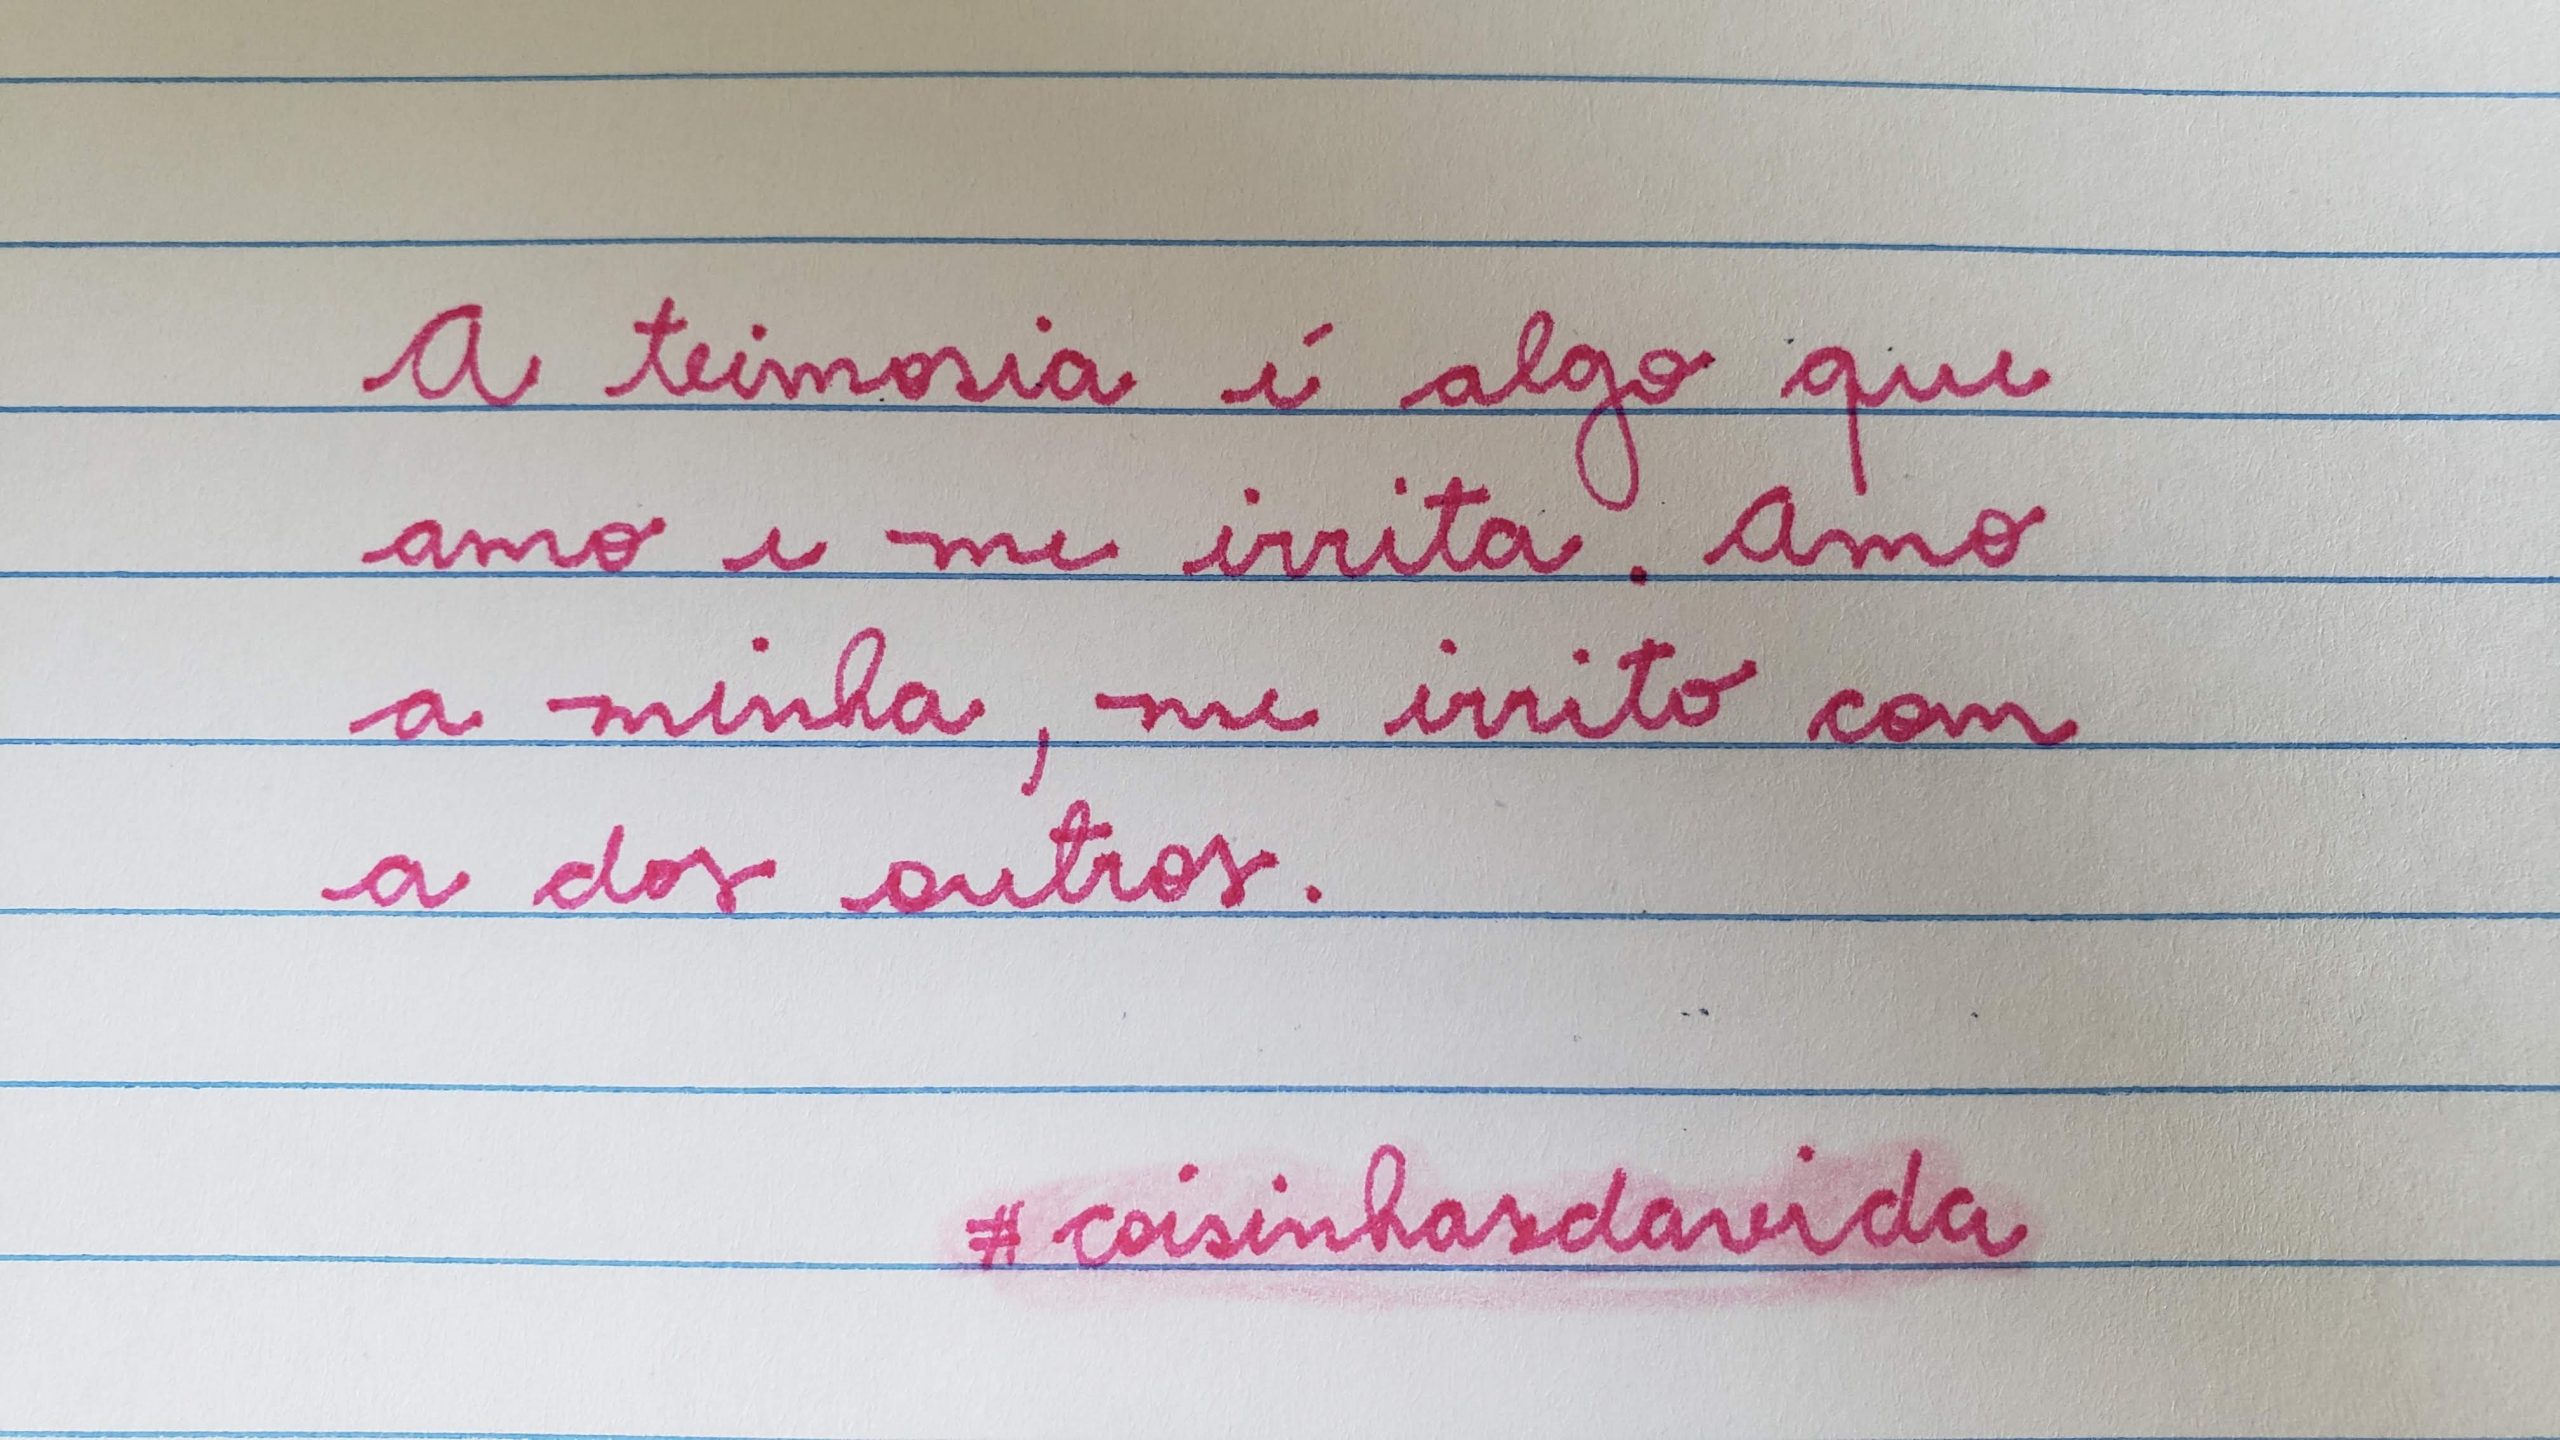 A teimosia é algo que
amo e me irrita. Amo
a minha, me irrito com
a dos outros.
#coisinhasdavida